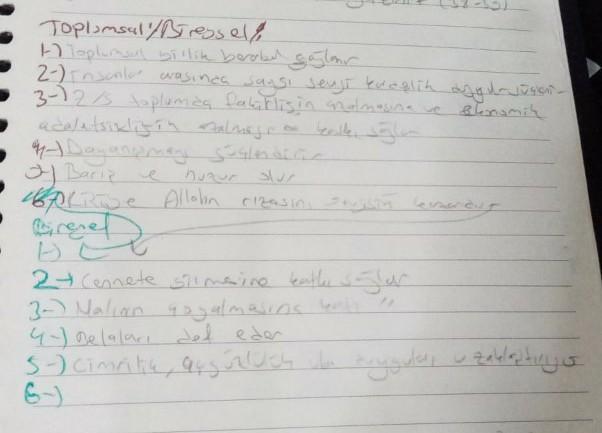 (32-33)
Toplumsal/Bireysel
1-) Toplumsal birlik beraberlik sağlanır
2-) İnsanlar arasında saygı sevgi kardeşlik
3-) Z/S toplumda fakirliğin azalmasına ve ekonomik
adaletsizliğin azalmasına katkı sağlar
4-) Dayanışmayı güçlendirir
5-) Barış ve huzur olur
6-) Kişiye Allahın rızasını, sevgisini kazandırır
Bireysel
1-)
2-) Cennete girmesine katkı sağlar
3-) Malının çoğalmasına katkı "
4-) Belaları def eder
5-) Cimrilik, açgözlülük duyguları uzaklaştırıyor
6-)